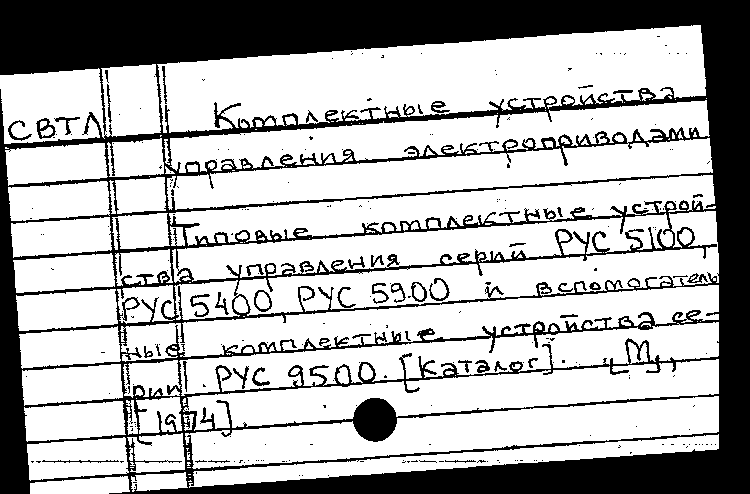 СВТЛ Комплектные устройства
управления электроприводами
Типовые комплектные устрой-
ства управления серий РУС 5100,
РУС 5400, РУС 5900 и вспомогатель
ные комплектные устройства се-
рии РУС 9500. [Каталог]. "М",
[1974].